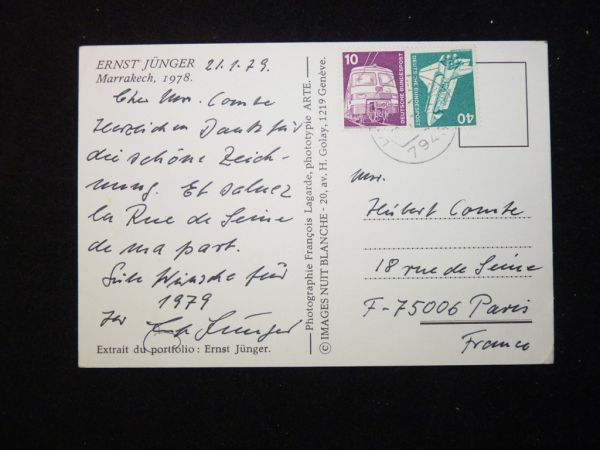 ERNST JÜNGER 21.1.79.
Marrakech, 1978.
Cher Mr. Comte
Herzlichen Dank für
die schöne Zeich-
nung. Et saluez
la Rue de Seine
de ma part.
Gute Wünsche für
1979
Ihr Ernst Jünger
Extrait du portfolio : Ernst Jünger.
Photographie François Lagarde, phototypie ARTE.
© IMAGES NUIT BLANCHE - 20, av. H. Golay, 1219 Genève.
10
DEUTSCHE BUNDESPOST
40
DEUTSCHE BUNDESPOST
794
Mr.
Hubert Comte
18 rue de Seine
F-75006 Paris
France